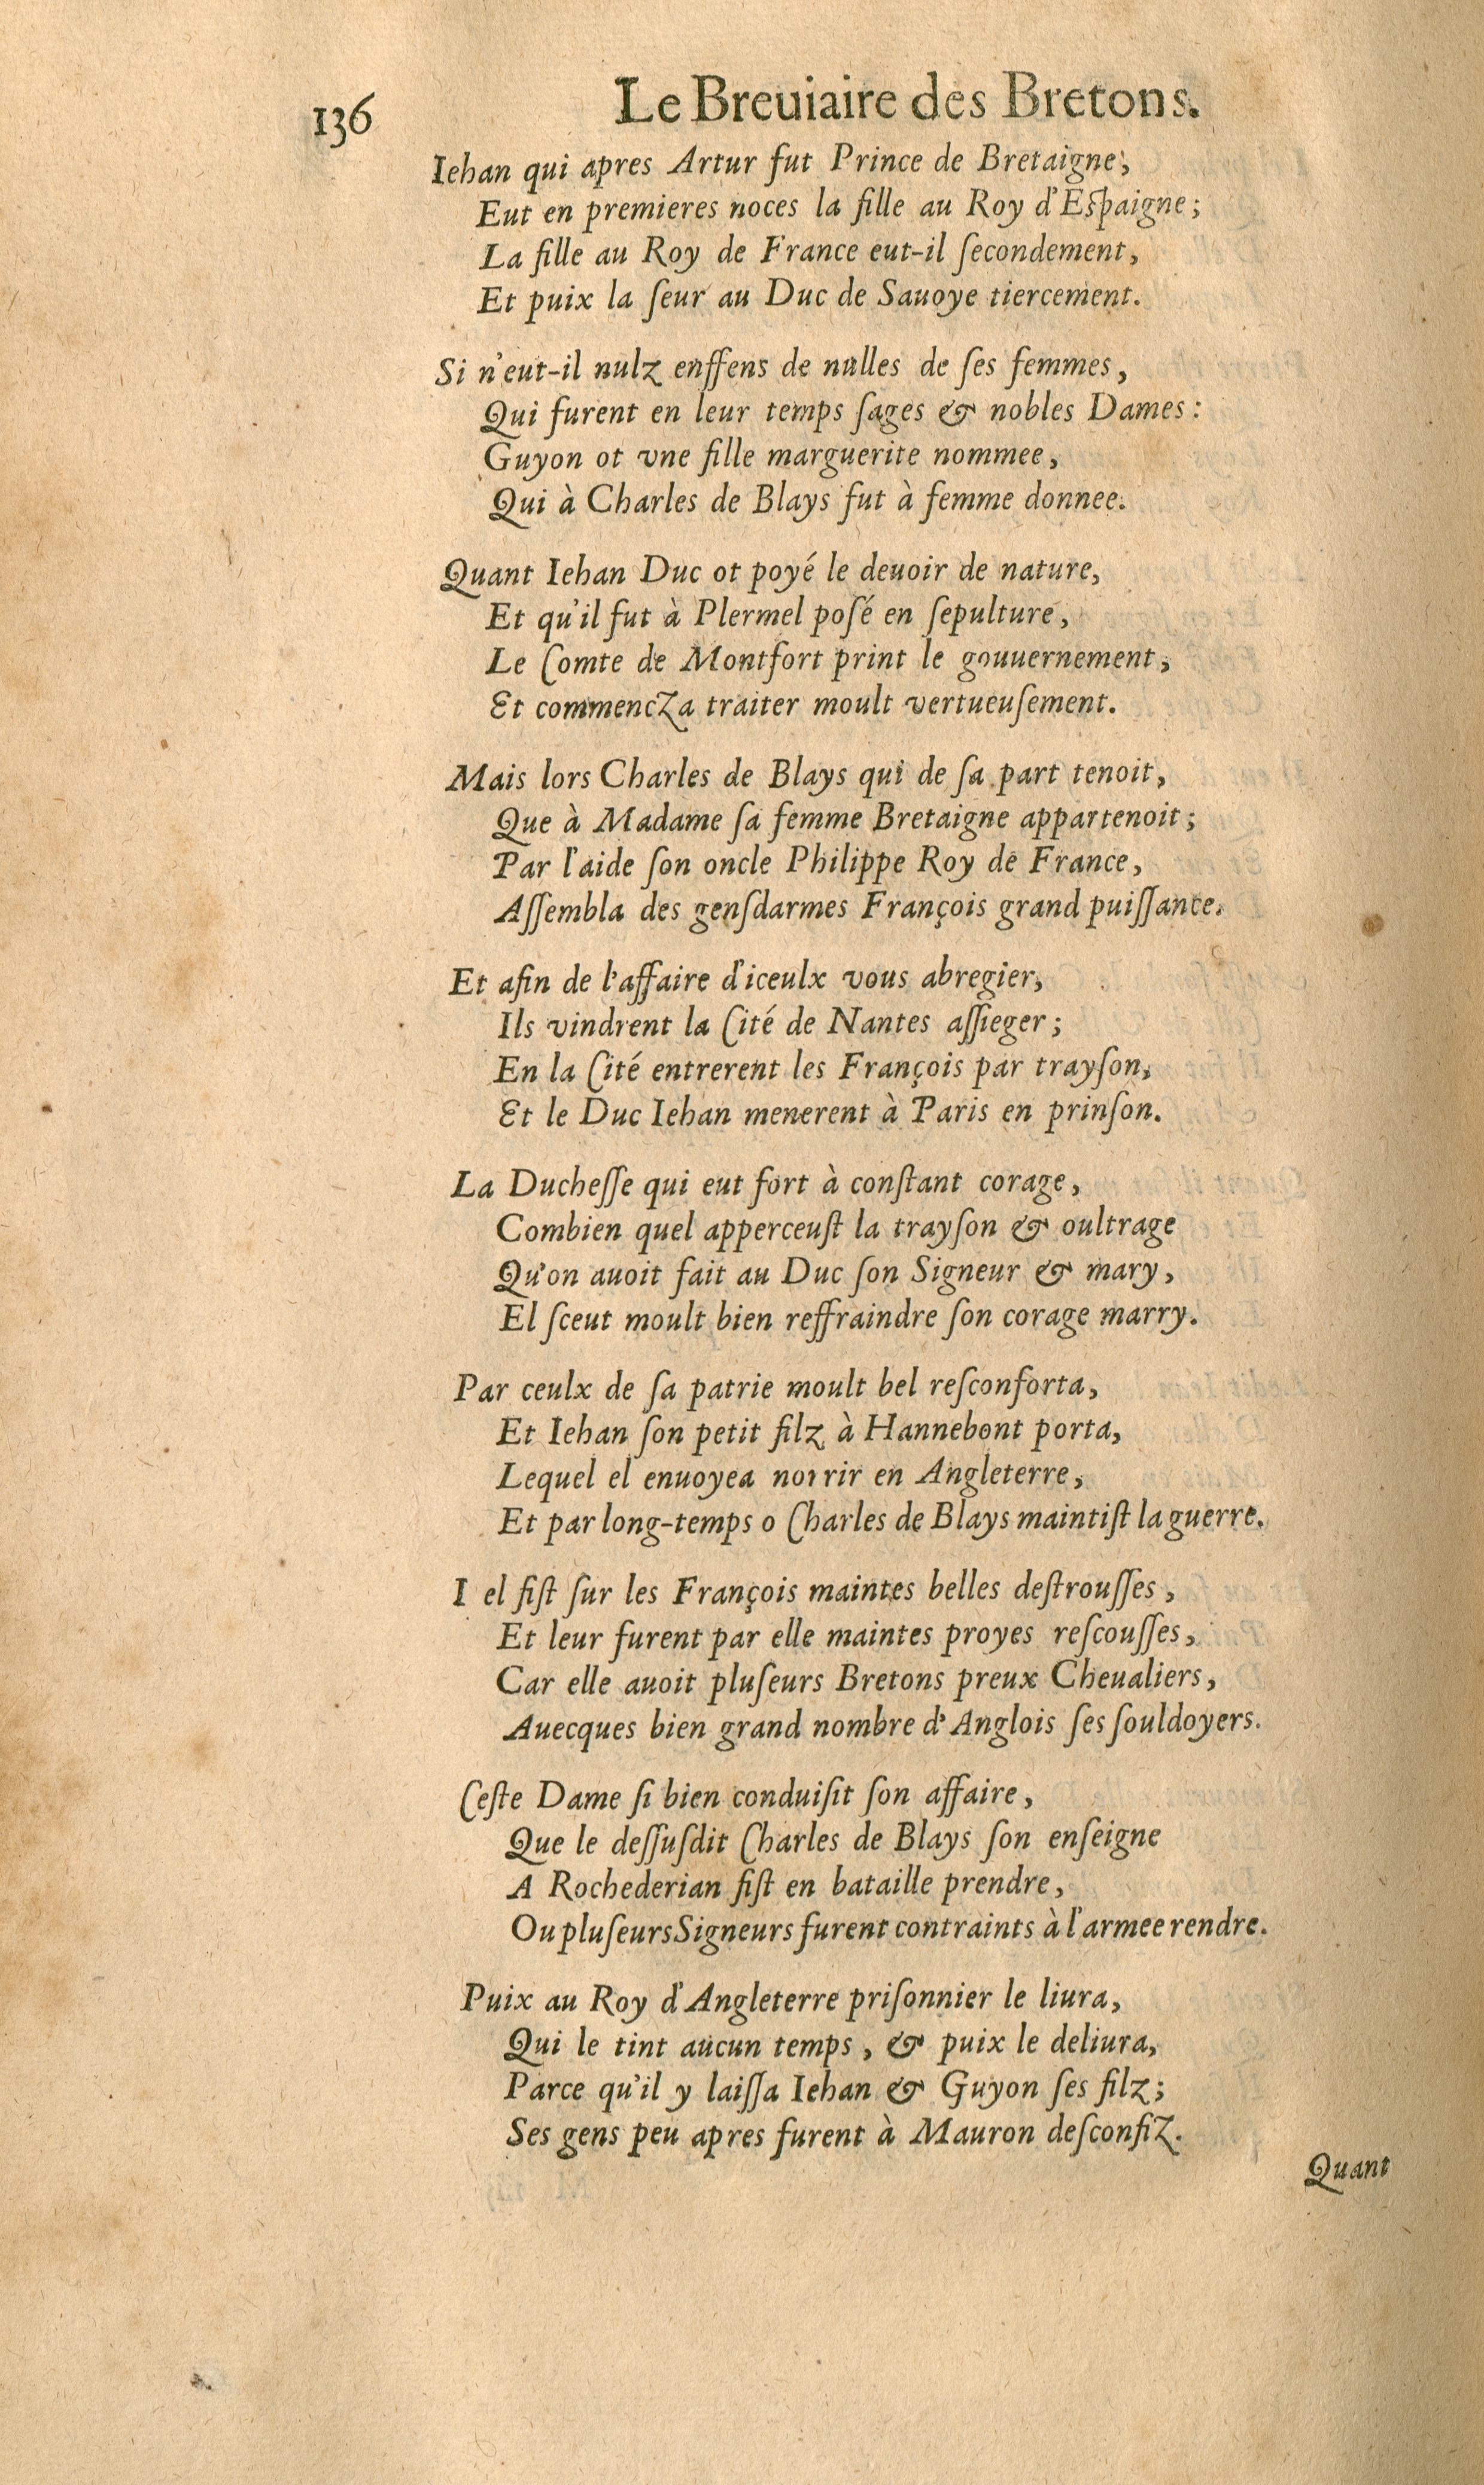 136
Le Breuiaire des Bretons.
Iehan qui apres Artur fut Prince de Bretaigne,
Eut en premieres noces la fille au Roy d'Eſpaigne;
La fille au Roy de France eut-il ſecondement,
Et puix la ſeur au Duc de Sauoye tiercement.
Si n'eut-il nulz enffens de nulles de ſes femmes,
Qui furent en leur temps ſages & nobles Dames:
Guyon ot vne fille marguerite nommee,
Qui à Charles de Blays fut à femme donnee.
Quant Iehan Duc ot poyé le deuoir de nature,
Et qu'il fut à Plermel poſé en ſepulture,
Le Comte de Montfort print le gouuernement,
Et commencza traiter moult vertueuſement.
Mais lors Charles de Blays qui de ſa part tenoit,
Que à Madame ſa femme Bretaigne appartenoit;
Par l'aide ſon oncle Philippe Roy de France,
Aſſembla des genſdarmes François grand puiſſance.
Et afin de l'affaire d'iceulx vous abregier,
Ils vindrent la Cité de Nantes aſſieger;
En la Cité entrerent les François par trayſon,
Et le Duc Iehan menerent à Paris en prinſon.
La Ducheſſe qui eut fort à conſtant corage,
Combien quel apperceuſt la trayſon & oultrage
Qu'on auoit fait au Duc ſon Signeur & mary,
El ſceut moult bien reffraindre ſon corage marry.
Par ceulx de ſa patrie moult bel reſconforta,
Et Iehan ſon petit filz à Hannebont porta,
Lequel el enuoyea norrir en Angleterre,
Et par long-temps o Charles de Blays maintiſt la guerre.
I el fiſt ſur les François maintes belles deſtrouſſes,
Et leur furent par elle maintes proyes reſcouſſes,
Car elle auoit pluſeurs Bretons preux Cheualiers,
Auecques bien grand nombre d'Anglois ſes ſouldoyers.
Ceſte Dame ſi bien conduiſit ſon affaire,
Que le deſſuſdit Charles de Blays ſon enſeigne
A Rochederian fiſt en bataille prendre,
Ou pluſeurs Signeurs furent contraints à l'armee rendre.
Puix au Roy d'Angleterre priſonnier le liura,
Qui le tint aucun temps, & puix le deliura,
Parce qu'il y laiſſa Iehan & Guyon ſes filz;
Ses gens peu apres furent à Mauron deſconfiz.
Quant